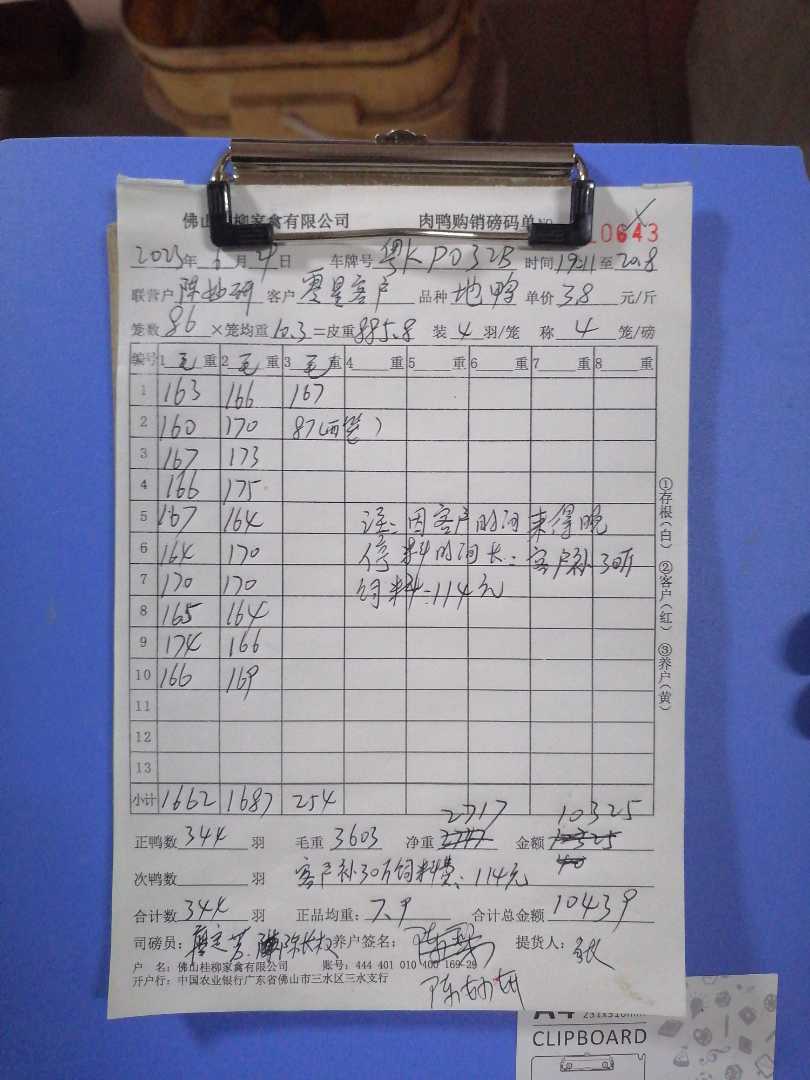 佛山桂柳家禽有限公司 肉鸭购销磅码单 NO 10643
2023年6月4日 车牌号 粤KP032B 时间 19:11至20.8
联营户 陈妙研 客户 零星客户 品种 地鸭 单价 3.8 元/斤
笼数 86 ×笼均重 10.3 =皮重 885.8 装 4 羽/笼 称 4 笼/磅
编号 1 毛 重 2 毛 重 3 毛 重 4 重 5 重 6 重 7 重 8 重
1 163 166 167
2 160 170 87(两笼)
3 167 173
4 166 175
5 167 164 注:因客户时间来得晚
6 164 170 停料时间长:客户补30斤
7 170 170 饲料:114元
8 165 164
9 174 166
10 166 169
11
12
13
小计 1662 1687 254
2717 10325
正鸭数 344 羽 毛重 3603 净重 金额
次鸭数 羽 客户补30斤饲料费:114元
合计数 344 羽 正品均重: 7.9 合计总金额 10439
司磅员: 养户签名: 提货人: 张
户 名:佛山桂柳家禽有限公司 账号:444 401 010 400 169-29
开户行:中国农业银行广东省佛山市三水区三水支行
陈妙研
①存根(白) ②客户(红) ③养户(黄)
A4 231x316mm
CLIPBOARD